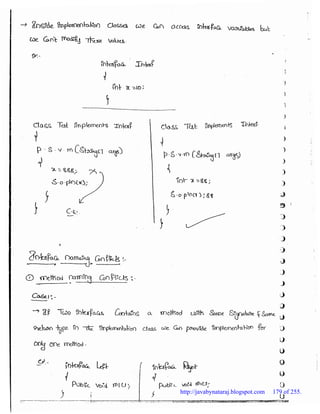 → Inside implementation classes we can access interface variables but
we can't modify those values.
ex:-
interface Interf
{
int x =10;
}
class Test implements Interf
{
p. s. v. m (String[] args)
{
x = 888;
s.o.pln(x);
}
}
C.E.
class Test implements Interf
{
p. s. v. m (String[] args)
{
int x = 88;
s.o.pln(x);
}
}
Interface naming Conflicts :-
① method naming Conflicts :-
Case 1 :-
→ If Two interfaces Contains a method with Same Signature & Same
return type in the implementation class we can provide implementation for
only one method.
Ex:-
interface Left
{
public void m1();
}
interface Right
{
public void m1();
}
http://javabynataraj.blogspot.com 179 of 255.